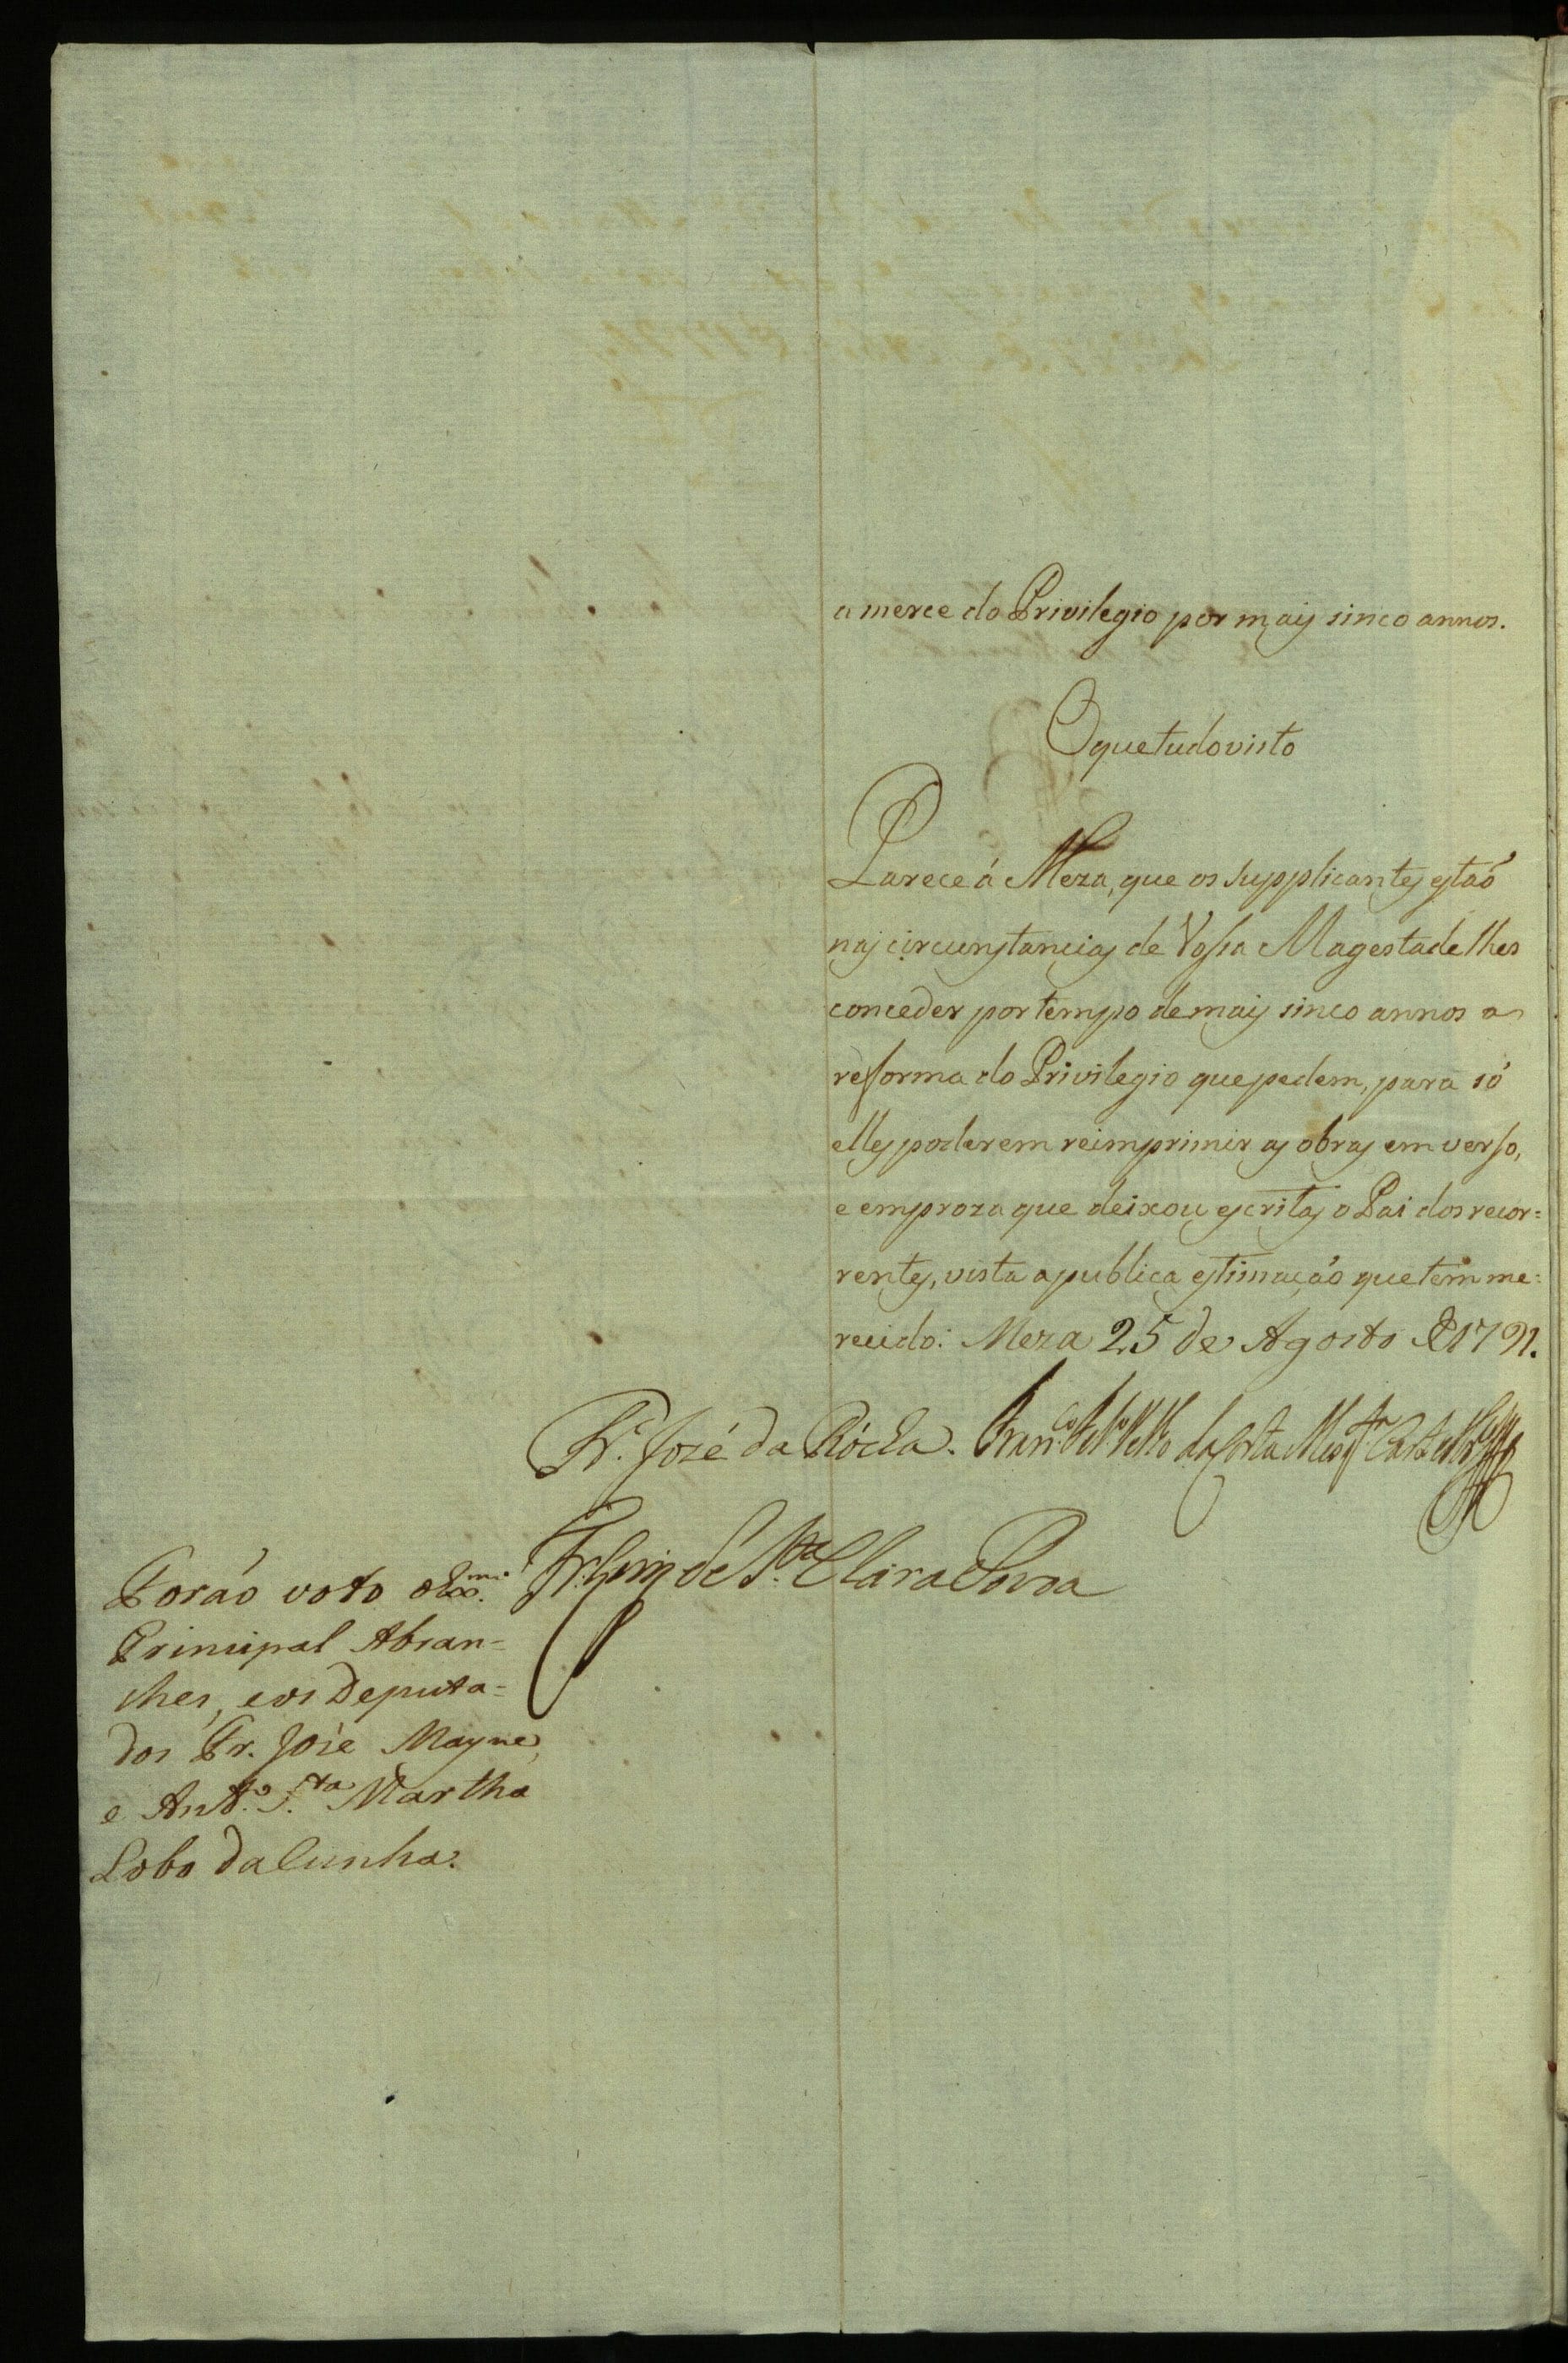 a merce do Privilegio por mais sinco annos.
O que tudo visto
Parece á Meza, que os supplicantes estaõ
nas circunstancias de Vossa Magestade lhes
conceder por tempo de mais sinco annos a
reforma do Privilegio que pedem, para só
elles poderem reimprimir as obras em verso,
e em proza que deixou escritas o Pai dos recor=
rentes, vista a publica estimaçaõ que tem me=
recido: Meza 25 de Agosto de 1791.
Fr. José da Rócha. Fran.co
Fr. Luis de S.ta Clara Povoa
Foraõ voto o Ex.mo
Principal Abran=
ches, e os Deputa=
dos Fr. José Mayne,
e Ant.o S.ta Martha
Lobo da Cunha.